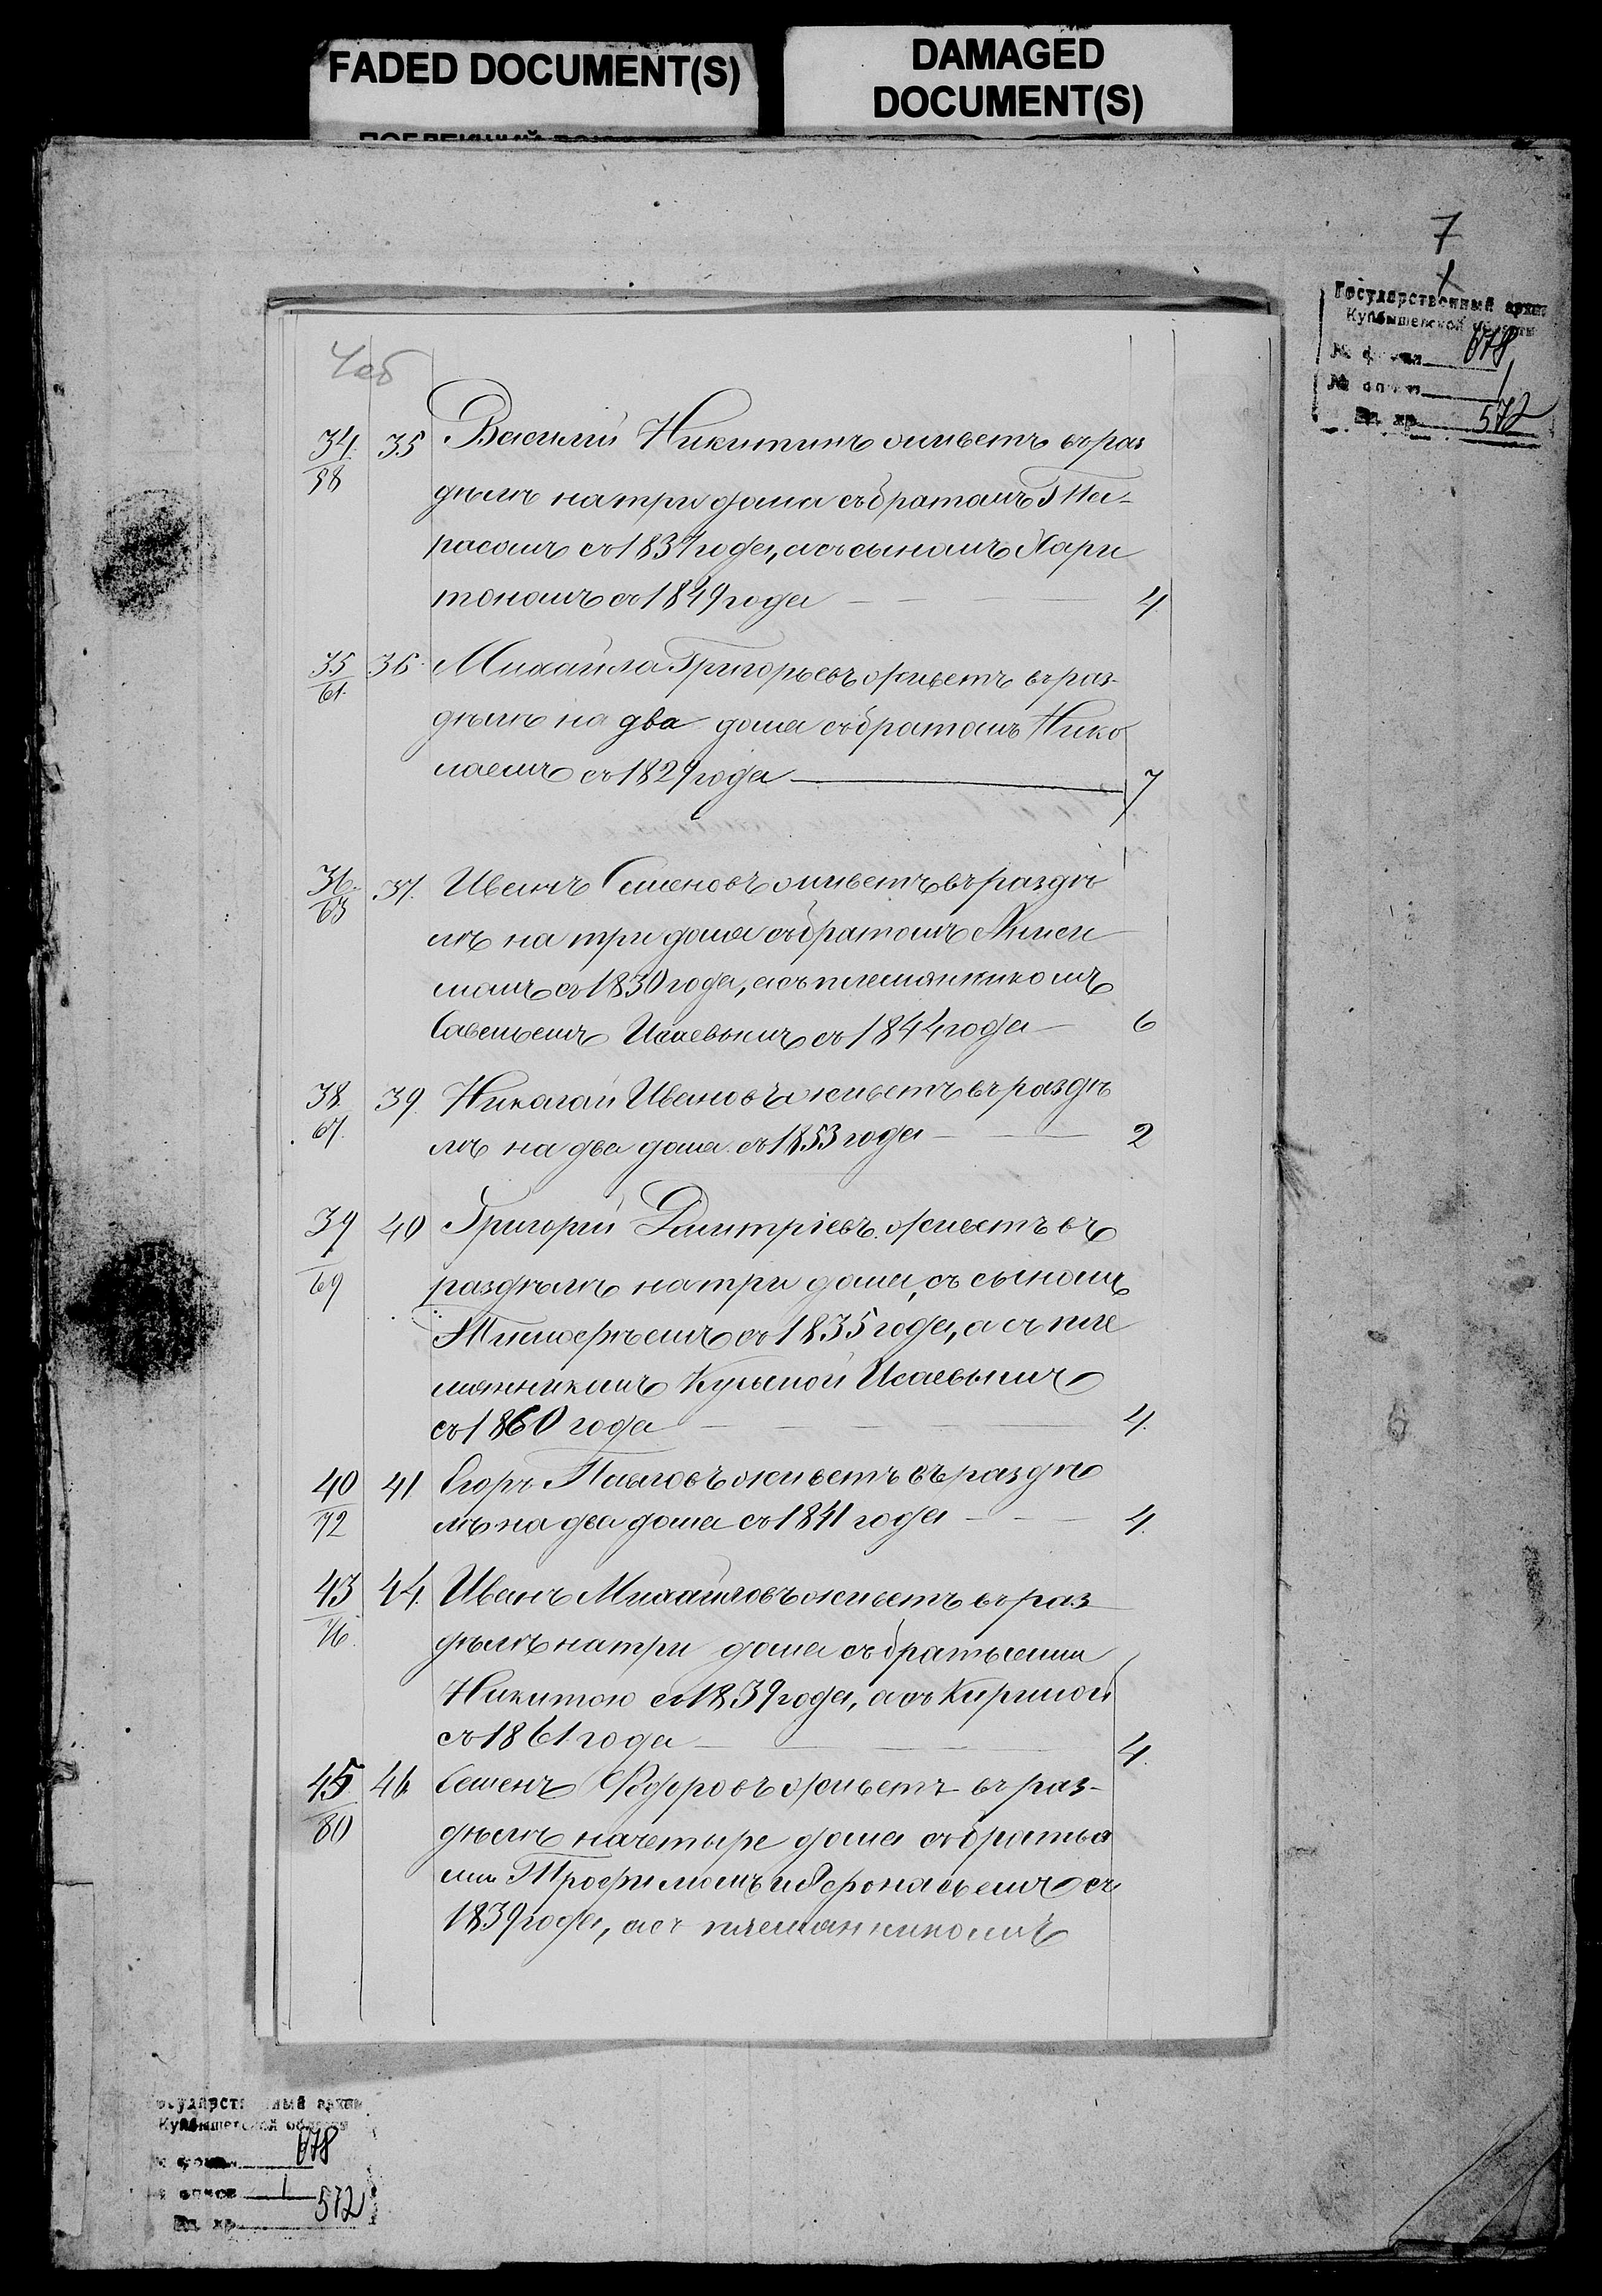 FADED DOCUMENT(S)
DAMAGED
DOCUMENT(S)
7
Государственный архив
Куйбышевской области
№ фонда 678
№ описи 1
Ед. хр. 572
7об
34/58 35 Василий Никитинъ живетъ въ раз
дѣлѣ на три дома съ братомъ Та-
расомъ съ 1837 года, а съ сыномъ Хари
тономъ съ 1849 года 4
35/61 36 Михайла Григорьевъ живетъ въ раз-
дѣлѣ на два дома съ братомъ Нико
лаемъ съ 1829 года 7
36/63 37. Иванъ Семеновъ живетъ въ раздѣ
лѣ на три дома съ братомъ Аниси
момъ съ 1830 года, а съ племянникомъ
Савельемъ Исаевымъ съ 1844 года 6
38/67 39. Николай Ивановъ живетъ въ раздѣ
лѣ на два дома съ 1853 года 2
39/69 40 Григорий Дмитріевъ живетъ въ
раздѣлѣ на три дома, съ сыномъ
Тимофѣемъ съ 1835 года, а съ пле
мянникомъ Кузьмой Исаевымъ
съ 1860 года 4.
40/72 41 Егоръ Павловъ живетъ въ раздѣ
лѣ на два дома съ 1841 года 4.
43/76 44. Иванъ Михайловъ живетъ въ раз
дѣлѣ на три дома съ братьями
Никитою съ 1839 года, а съ Кирилой
съ 1861 года 4.
45/80 46 Семенъ Федоровъ живетъ въ раз-
дѣлѣ на четыре дома съ братья
ми Трофимомъ и Афонасьемъ съ
1839 года, а съ племянникомъ
6
Государственный архив
Куйбышевской области
№ фонда 678
№ описи 1
Ед. хр. 572